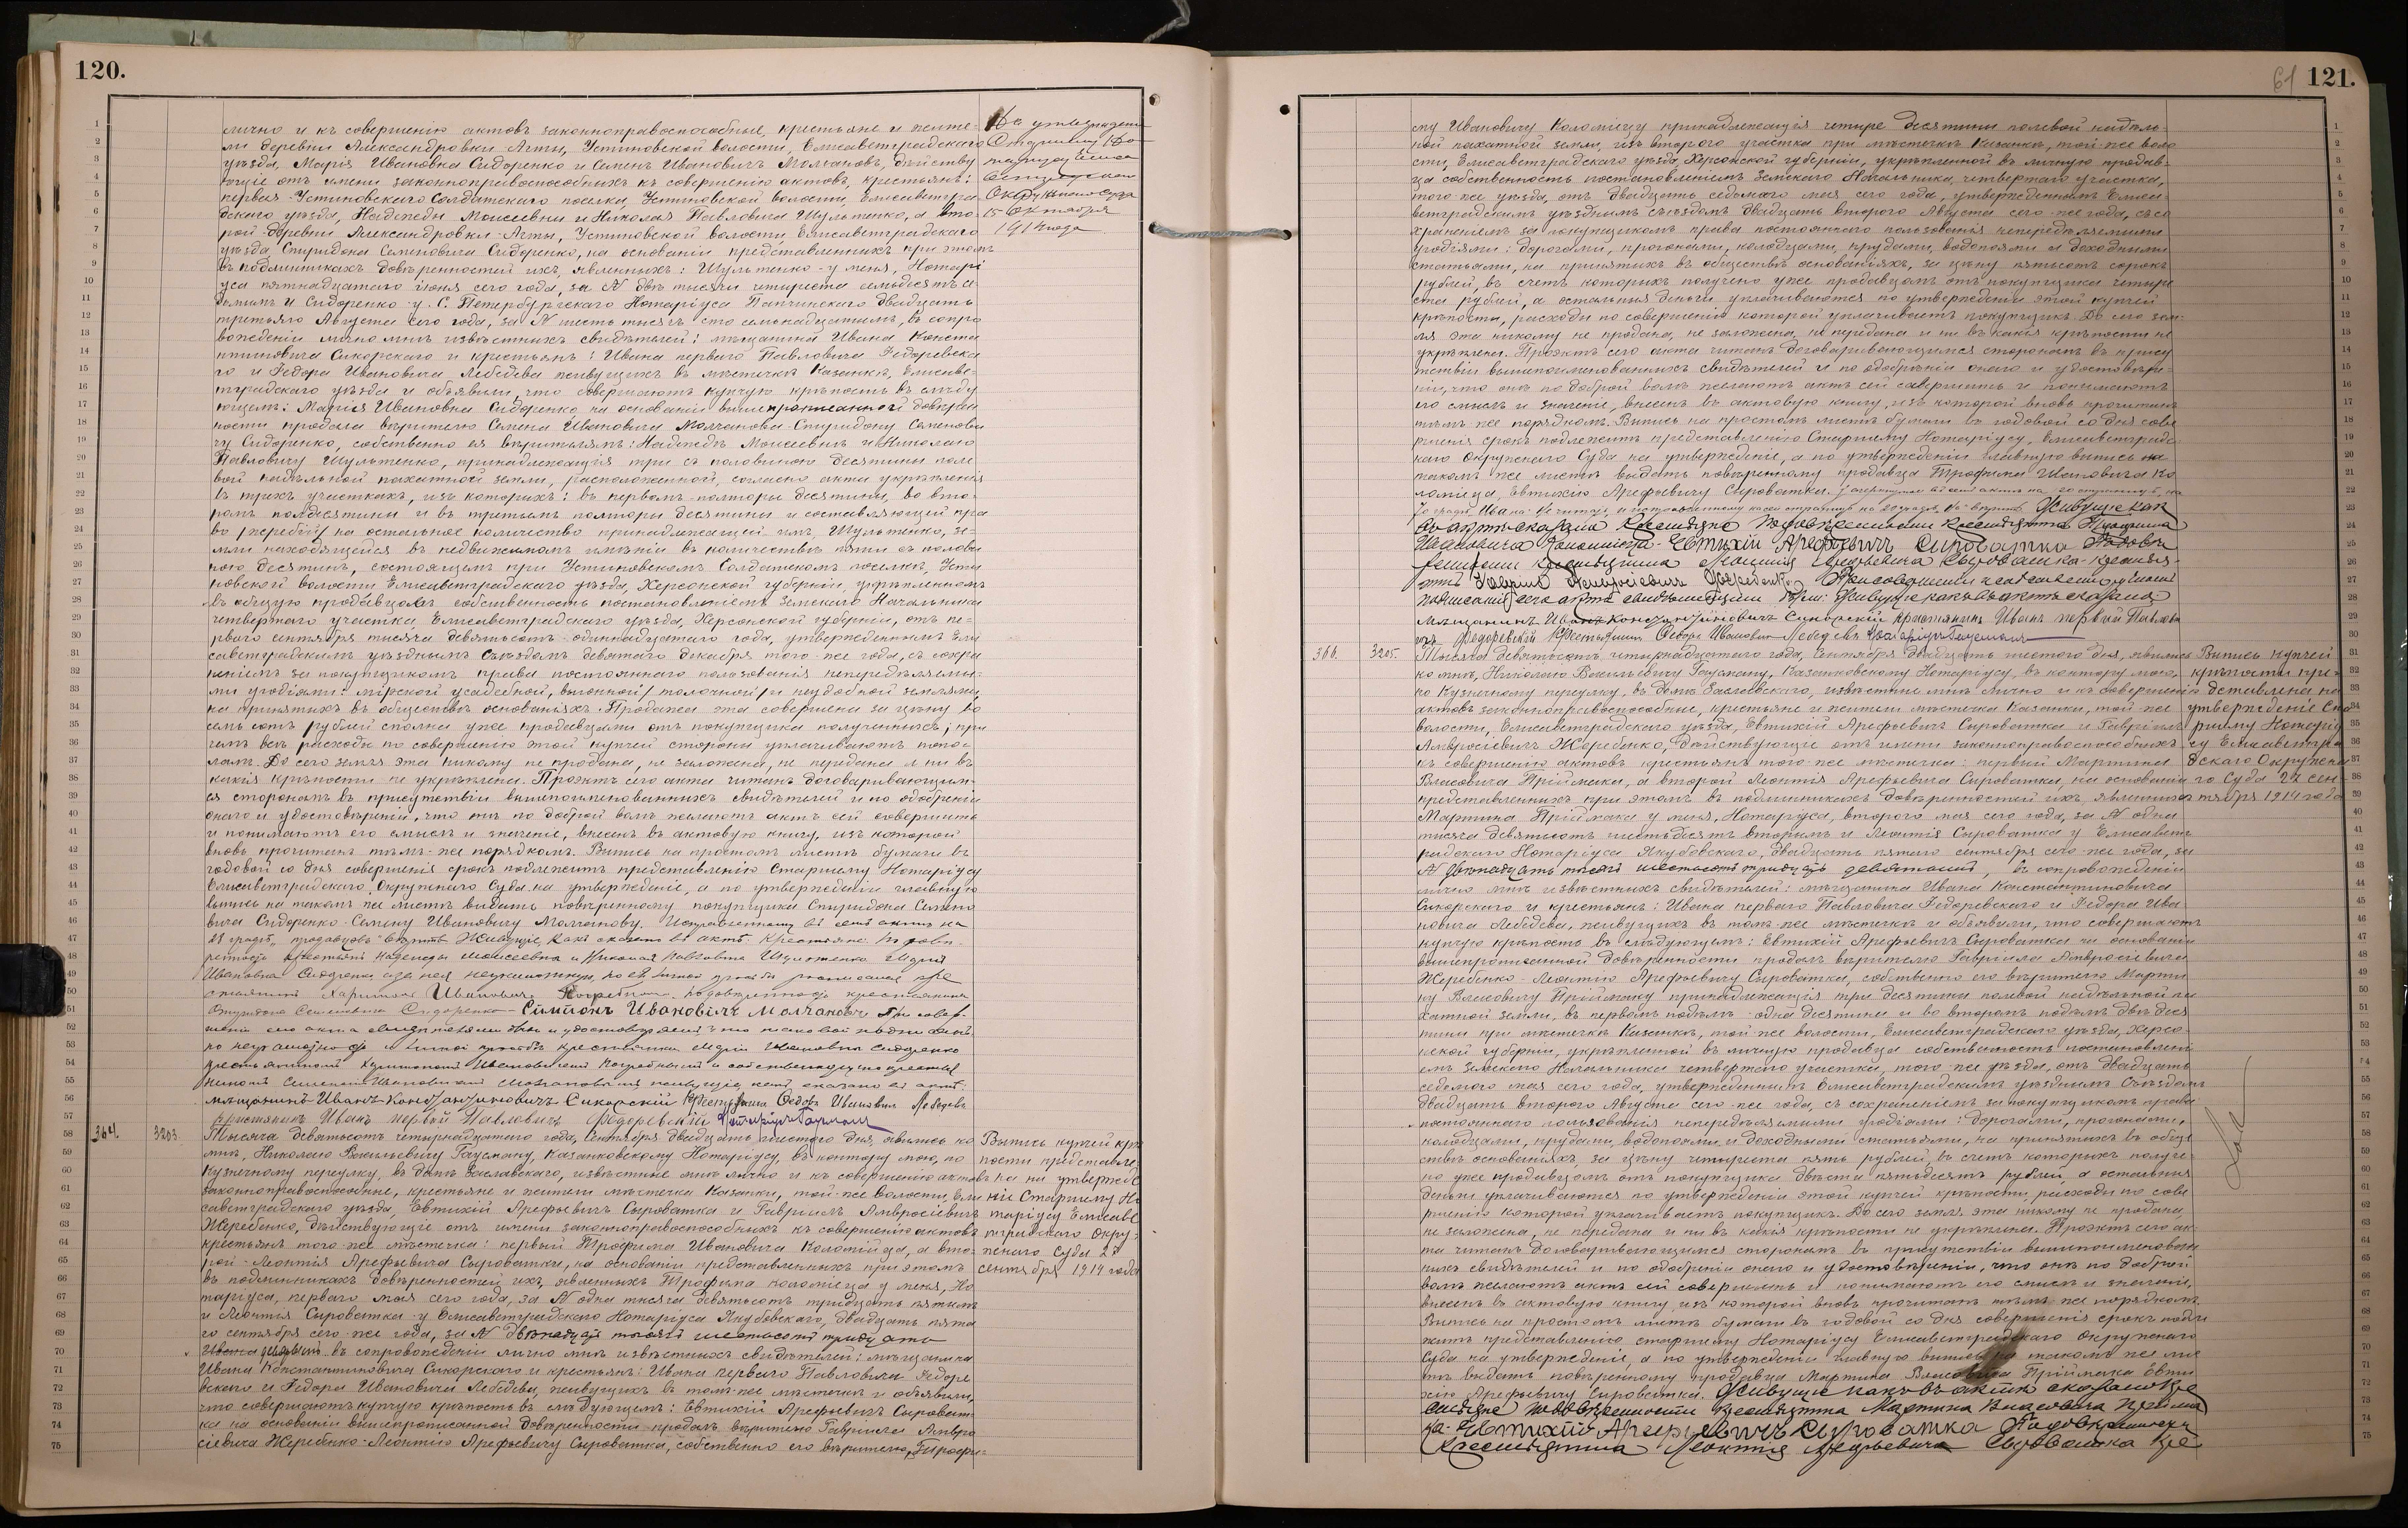 120.
лично и къ совершенію актовъ законноправоспособные, крестьяне и жите-
ли деревни Александровки-Агты, Устиновской волости, Елисаветградскаго
уѣзда, Марія Ивановна Сидоренко и Семенъ Ивановичъ Молчановъ, дѣйству
ющіе отъ имени законноправоспособныхъ къ совершенію актовъ, крестьянъ:
первая-Устиновскаго Солдатскаго поселка, Устиновской волости, Елисаветгра
дскаго уѣзда, Надежды Моисеевны и Николая Павловича Шульженко, а вто-
рой-деревни Александровки-Агты, Устиновской волости Елисаветградскаго
уѣзда Спиридона Семеновича Сидоренко, на основаніи представленныхъ при этомъ
въ подлинникахъ довѣренностей ихъ, явленныхъ: Шульженко-у меня, Нотарі
уса пятнадцатаго іюня сего года, за № двѣ тысячи четыреста семьдесятъ се
дьмымъ и Сидоренко-у С. Петербургскаго Нотаріуса двадцать
третьяго Августа сего года, за № шесть тысячъ сто семьнадцатымъ, въ сопро
вожденіи лично мнѣ извѣстныхъ свидѣтелей: мѣщанина Ивана Конста
нтиновича Сикорскаго и крестьянъ: Ивана перваго Павловича Федоревска
го и Федора Ивановича Лебедева живущихъ въ мѣстечкѣ Казанкѣ, Елисаве-
тградскаго уѣзда и объявили, что совершаютъ купчую крѣпость въ слѣду
ющемъ: Марія Ивановна Сидоренко на основаніи вышепрописанной довѣрен
ности продала вѣрителю Семена Ивановича Молчанова-Спиридону Семенови
чу Сидоренко, собственно ея вѣрителямъ: Надеждѣ Моисеевнѣ и Николаю
Павловичу Шульженко, принадлежащія три съ половиною десятины поле
вой надѣльной пахатной земли, расположенной, согласно акта укрѣпленія
въ трехъ участкахъ, изъ которыхъ: въ первомъ-полторы десятины, во вто-
ромъ полдесятины и въ третьемъ полторы десятины и составляющей пра
во /жеребій/ на остальное количество принадлежащей имъ, Шульженко, зе-
мли находящейся въ недвижимомъ имѣніи въ количествѣ пяти съ полови
ною десятинъ, состоящемъ при Устиновскомъ Солдатскомъ поселкѣ, Усти
новской волости Елисаветградскаго уѣзда, Херсонской губерніи, укрѣпленномъ
въ общую продавцовъ собственность постановленіемъ Земскаго Начальника
четвертаго участка, Елисаветградскаго уѣзда, Херсонской губерніи, отъ пе-
рваго сентября тысяча девятьсотъ одиннадцатаго года, утвержденнымъ Ели
саветградскимъ уѣзднымъ Съѣздомъ девятаго Декабря того-же года, съ сохра
неніемъ за покупщикомъ права постояннаго пользованія непередѣляемы-
ми угодіями: мірской усадебной, выгонной/толочной/и неудобной землями,
на принятыхъ въ обществѣ основаніяхъ. Продажа эта совершена за цѣну во
семь сотъ рублей сполна уже продавцами отъ покупщика полученныхъ; при
чемъ всѣ расходы по совершенію этой купчей стороны уплачиваютъ попо-
ламъ. До сего земля эта никому не продана, не заложена, не передана и ни въ
какія крѣпости не укрѣплена. Проэктъ сего акта читанъ договаривающим-
ся сторонамъ въ присутствіи вышепоименованныхъ свидѣтелей и по одобреніи
онаго и удостовѣреніи, что они по доброй волѣ желаютъ актъ сей совершить
и понимаютъ его смыслъ и значеніе, внесенъ въ актовую книгу, изъ которой
вновь прочитанъ тѣмъ-же порядкомъ. Выпись на простомъ листѣ бумаги въ
годовой со дня совершенія срокъ подлежитъ представленію Старшему Нотаріусу
Елисаветградскаго Окружнаго Суда на утвержденіе, а по утвержденіи главную
выпись на такомъ же листѣ выдать повѣренному покупщика Спиридона Семено
вича Сидоренко-Семену Ивановичу Молчанову.
Живущіе, какъ сказано въ актѣ. Крестьяне: по довѣ-
ренности крестьянъ Надежды Моисеевны и Николая Павловича Шульженко Марія
Ивановна Сидоренко а за нея неграмотную, по ея личной просьбѣ росписался кре
стьянинъ Харитонъ Ивановичъ. По довѣренности крестьянина
Спиридона Семеновича Сидоренко-Симионъ Ивановичъ Молчановъ. При совер-
шеніи сего акта свидѣтелями были и удостовѣряемъ что таковой подписанъ
по неграмотности и личной просьбѣ крестьянки Маріи Ивановны Сидоренко
крестьяниномъ Харитономъ Ивановичемъ и собственноручно крестья
ниномъ Семеномъ Ивановичемъ Молчановымъ, живущіе, какъ сказано въ актѣ:
мѣщанинъ Иванъ Константиновичъ Сикорскій Крестьянинъ Федоръ Ивановичъ Лебедевъ
крестьянинъ Иванъ первый Павловичъ Федоревскій Нотаріусъ Гаусманъ
На утверждены
Старшимъ Но
таріусомъ Елиса
ветградскаго
Окружнаго Суда
15 Октября
1914 года
364. 3203.
Тысяча девятьсотъ четырнадцатаго года, Сентября двадцать шестого дня, явились ко
мнѣ, Николаю Васильевичу Гаусману, Казанковскому Нотаріусу, въ контору мою, по
Кузнечному переулку, въ домѣ Заславскаго, извѣстные мнѣ лично и къ совершенію актовъ
законноправоспособные, крестьяне и жители мѣстечка Казанки, той-же волости, Ели
саветградскаго уѣзда, Евтихій Арефьевичъ Сыроватка и Гавріилъ Амвросіевичъ
Жеребенко, дѣйствующіе отъ имени законноправоспособныхъ къ совершенію актовъ
крестьянъ того-же мѣстечка: первый Трофима Ивановича Коломійца, а вто-
рой-Леонтія Арефьевича Сыроватки, на основаніи представленныхъ при этомъ
въ подлинникахъ довѣренностей ихъ, явленныхъ Трофима Коломійца у меня, Но
таріуса, перваго мая сего года, за № одна тысяча девятьсотъ тридцать пятымъ
и Леонтія Сыроватка-у Елисаветградскаго Нотаріуса Якубовскаго, двадцать пята
го сентября сего-же года, за № двѣнадцать тысячъ шестьсотъ тридцать
въ сопровожденіи лично мнѣ извѣстныхъ свидѣтелей: мѣщанина
Ивана Константиновича Сикорскаго и крестьянъ: Ивана перваго Павловича Федоре
вскаго и Федора Ивановича Лебедева, живущихъ въ томъ-же мѣстечкѣ и объявили,
что совершаютъ купчую крѣпость въ слѣдующемъ: Евтихій Арефьевичъ Сыроват-
ка на основаніи вышепрописанной довѣренности продалъ вѣрителю Гавріила Амвро
сіевича Жеребенко-Леонтію Арефьевичу Сыроватка, собственно его вѣрителю, Трофи-
Выпись купчей крѣ
пости представле
на на утвержде
ніе Старшему Но
таріусу Елисаве
тградскаго Окру-
жнаго Суда 27
сентября 1914 года
61 121.
му Ивановичу Коломійцу принадлежащія четыре десятины полевой надѣль-
ной пахатной земли, изъ второго участка при мѣстечкѣ Казанкѣ, той-же воло
сти, Елисаветградскаго уѣзда, Херсонской губерніи, укрѣпленной въ личную продав-
ца собственность постановленіемъ Земскаго Начальника, четвертаго участка,
того-же уѣзда, отъ двадцать седьмаго мая сего года, утвержденнымъ Елиса-
ветградскимъ уѣзднымъ съѣздомъ двадцать второго Августа сего-же года, съ со
храненіемъ за покупщикомъ права постояннаго пользованія непередѣляемыми
угодіями: дорогами, прогонами, колодцами, прудами, водопоями и доходными
статьями, на принятыхъ въ обществѣ основаніяхъ, за цѣну пятьсотъ сорокъ
рублей, въ счетъ которыхъ получено уже продавцомъ отъ покупщика четыре
ста рублей, а остальныя деньги уплачиваются по утвержденіи этой купчей
крѣпости, расходы по совершенію которой уплачиваетъ покупщикъ. До сего зем-
ля эта никому не продана, не заложена, не передана и ни въ какія крѣпости не
укрѣплена. Проэктъ сего акта читанъ договаривающимся сторонамъ въ присут
ствіи вышепоименованныхъ свидѣтелей и по одобреніи онаго и удостовѣре-
ніи, что они по доброй волѣ желаютъ актъ сей совершить и понимаютъ
его смыслъ и значеніе, внесенъ въ актовую книгу, изъ которой вновь прочитанъ
тѣмъ-же порядкомъ. Выпись на простомъ листѣ бумаги въ годовой со дня сове
ршенія срокъ подлежитъ представленію Старшему Нотаріусу, Елисаветградс
каго Окружнаго Суда на утвержденіе, а по утвержденіи главную выпись на
такомъ же листѣ выдать повѣренному продавца Трофима Ивановича Ко
ломійца, Евтихію Арефьевичу Сыроватки.
Живущіе какъ
въ актѣ сказано Крестьяне По довѣренности Крестьянина Трофима
Ивановича Коломійца-Евтихій Арефьевичъ Сироватка По довѣ
ренности Крестьянина Леонтія Арефьевича Сыроватка-крестья-
нинъ Гавріилъ Амвросіевичъ Жеребенко. При совершеніи
подписаніи сего акта свидѣтелями были: Живущіе какъ въ актѣ сказано
мѣщанинъ Иванъ Константиновичъ Сикорскій крестьянинъ Иванъ первый Павлов
ичъ Федоревскій Крестьянинъ Федоръ Ивановичъ Лебедевъ Нотаріусъ Гаусманъ
366. 3205.
Тысяча девятьсотъ четырнадцатаго года, Сентября двадцать шестого дня, явились
ко мнѣ, Николаю Васильевичу Гаусману, Казанковскому Нотаріусу, въ контору мою,
по Кузнечному переулку, въ домѣ Заславскаго, извѣстные мнѣ лично и къ совершенію
актовъ законноправоспособные, крестьяне и жители мѣстечка Казанки, той-же
волости, Елисаветградскаго уѣзда, Евтихій Арефьевичъ Сыроватка и Гавріилъ
Амвросіевичъ Жеребенко, дѣйствующіе отъ имени законноправоспособныхъ
къ совершенію актовъ крестьянъ того-же мѣстечка: первый Мартина
Власовича Пріймака, а второй Леонтія Арефьевича Сыроватка, на основаніи
представленныхъ при этомъ въ подлинникахъ довѣренностей ихъ, явленныхъ
Мартина Пріймака у меня, Нотаріуса, второго мая сего года, за № одна
тысяча девятьсотъ шестьдесятъ вторымъ и Леонтія Сыроватка у Елисаветг
радскаго Нотаріуса Якубовскаго, двадцать пятаго сентября сего-же года, за
№ двѣнадцать тысячъ шестьсотъ тридцать девятымъ, въ сопровожденіи
лично мнѣ извѣстныхъ свидѣтелей: мѣщанина Ивана Константиновича
Сикорскаго и крестьянъ: Ивана перваго Павловича Федоревскаго и Федора Ива
новича Лебедева, живущихъ въ томъ-же мѣстечкѣ и объявили, что совершаютъ
купчую крѣпость въ слѣдующемъ: Евтихій Арефьевичъ Сыроватка на основаніи
вышепрописанной довѣренности продалъ вѣрителю Гавріила Амвросіевича
Жеребенко-Леонтію Арефьевичу Сыроватка, собственно его вѣрителю Марти
ну Власовичу Пріймаку принадлежащія три десятины полевой надѣльной па
хатной земли, въ первомъ подѣлѣ-одна десятина и во второмъ подѣлѣ двѣ деся
тины при мѣстечкѣ Казанкѣ, той-же волости, Елисаветградскаго уѣзда, Херсо-
нской губерніи, укрѣпленной въ личную продавца собственность постановлені
емъ Земскаго Начальника четвертаго участка, того-же уѣзда, отъ двадцать
седьмаго мая сего года, утвержденнымъ Елисаветградскимъ уѣзднымъ Съѣздомъ
двадцать второго Августа сего-же года, съ сохраненіемъ за покупщикомъ права
постояннаго пользованія непередѣляемыми угодіями: дорогами, прогонами,
колодцами, прудами, водопоями и доходными статьями, на принятыхъ въ обще
ствѣ основаніяхъ, за цѣну четыреста пять рублей, въ счетъ которыхъ получе-
но уже продавцомъ отъ покупщика двѣсти пятьдесятъ рублей, а остальныя
деньги уплачиваются по утвержденіи этой купчей крѣпости, расходы по сове
ршенію которой уплачиваетъ покупщикъ. До сего земля эта никому не продана,
не заложена, не передана и ни въ какія крѣпости не укрѣплена. Проэктъ сего ак-
та читанъ договаривающимся сторонамъ въ присутствіи вышепоименован
ныхъ свидѣтелей и по одобреніи онаго и удостовѣреніи, что они по доброй
волѣ желаютъ актъ сей совершить и понимаютъ его смыслъ и значеніе,
внесенъ въ актовую книгу, изъ которой вновь прочитанъ тѣмъ-же порядкомъ.
Выпись на простомъ листѣ бумаги въ годовой со дня совершенія срокъ подле
житъ представленію старшему Нотаріусу Елисаветградскаго Окружнаго
Суда на утвержденіе, а по утвержденіи главную выпись на такомъ же лис
тѣ выдать повѣренному продавца Мартина Власовича Пріймака Евти
хію Арефьевичу Сыроватки. Живущіе какъ въ актѣ сказано Кре
стьяне По довѣренности Крестьянина Мартина Власовича Пріима
ка-Евтихій Арефьевичъ Сыроватка По довѣренности
Крестьянина Леонтія Арефьевича Сыроватка Кре
Выпись купчей
крѣпости пре-
дставлена на
утвержденіе Ста
ршему Нотаріу
су Елисаветгра
дскаго Окружна
го Суда 27 сен-
тября 1914 года